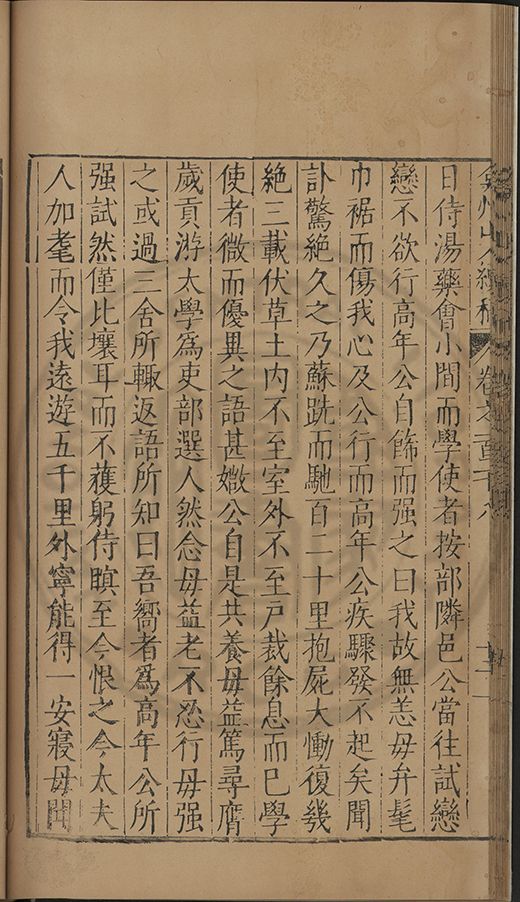 弇州山人續稿 卷之一百十八
日侍湯藥會小間而學使者按部隣邑公當往試戀
戀不欲行高年公自飾而强之曰我故無恙毋弁髦
巾裾而傷我心及公行而高年公疾驟發不起矣聞
訃驚絶久之乃蘇跣而馳百二十里抱屍大慟復幾
絶三載伏草土内不至室外不至戸裁餘息而巳學
使者微而優異之語甚媺公自是共養毋益篤尋膺
歲貢游太學爲吏部選人然念毋益老不忍行毋强
之或過三舍所輙返語所知曰吾嚮者爲高年公所
强試然僅比壤耳而不蒦躬侍瞑至今恨之今太夫
人加耄而令我逺遊五千里外寧能得一安寢毋聞